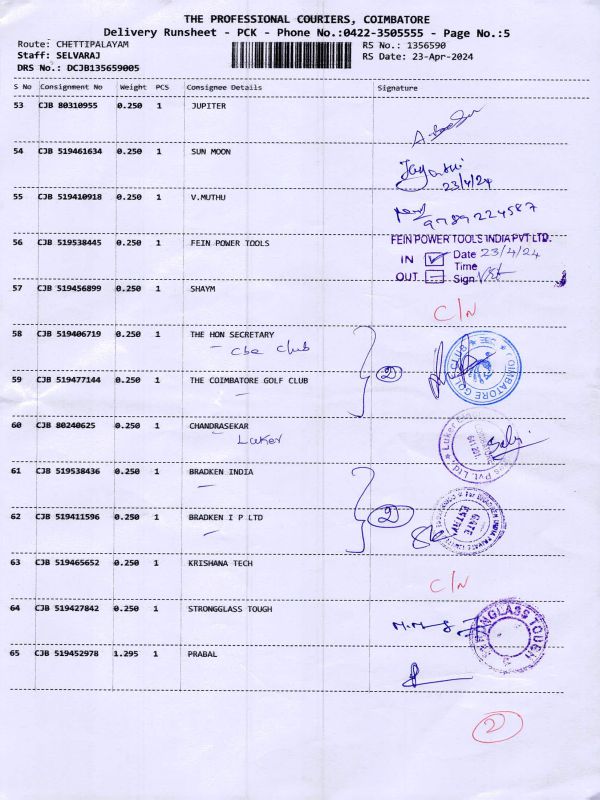 THE PROFESSIONAL COURIERS, COIMBATORE
Delivery Runsheet - PCK - Phone No.:0422-3505555 - Page No.:5
Route: CHETTIPALAYAM
RS No.: 1356590
Staff: SELVARAJ
RS Date: 23-Apr-2024
DRS No.: DCJB135659005
S No Consignment No Weight PCS Consignee Details Signature
53 CJB 80310955 0.250 1 JUPITER
54 CJB 519461634 0.250 1 SUN MOON
23/4/24
55 CJB 519410918 0.250 1 V.MUTHU
9789224587
56 CJB 519538445 0.250 1 FEIN POWER TOOLS
FEIN POWER TOOLS INDIA PVT LTD.
IN Date 23/4/24
Time
OUT Sign
57 CJB 519456899 0.250 1 SHAYM
C/N
58 CJB 519406719 0.250 1 THE HON SECRETARY
- Cbe Club
2
COIMBATORE GOLF CLUB
59 CJB 519477144 0.250 1 THE COIMBATORE GOLF CLUB
60 CJB 80240625 0.250 1 CHANDRASEKAR
Luker
61 CJB 519538436 0.250 1 BRADKEN INDIA
2
GATE ENTRY
62 CJB 519411596 0.250 1 BRADKEN I P LTD
63 CJB 519465652 0.250 1 KRISHANA TECH
C/N
64 CJB 519427842 0.250 1 STRONGGLASS TOUGH
65 CJB 519452978 1.295 1 PRABAL
2